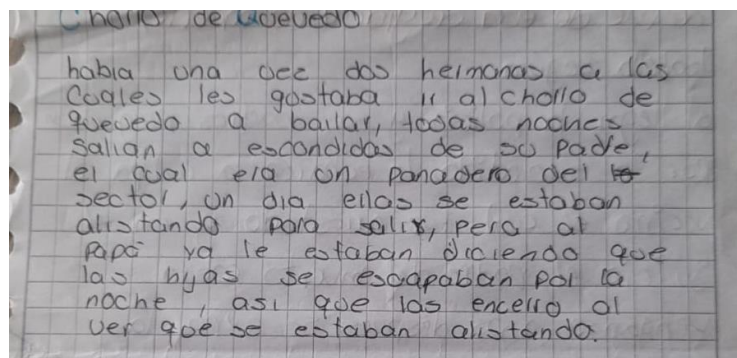 Chollo de Quevedo
habia una vez dos hermanas a las
cuales les gostaba ir al chollo de
quevedo a bailar, todas noches
salian a escondidas de su padre,
el cual era un panadero del
sector, un dia ellas se estaban
alistando para salir, pero al
papá ya le estaban diciendo que
las hijas se escapaban por la
noche, asi que las encerro al
ver que se estaban alistando.